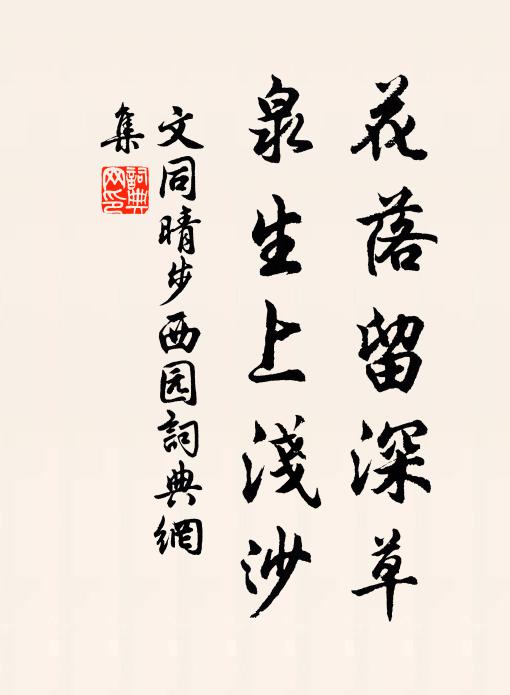 花落留深草
泉生上淺沙
文同晴步西园詞典網
集
詞典网印